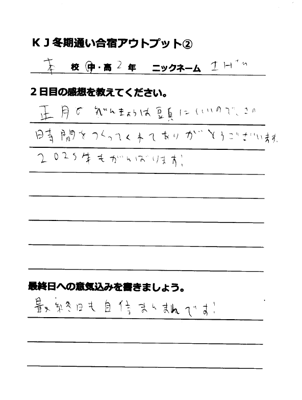 KJ冬期通い合宿アウトプット②
本 校 中・高 2 年 ニックネーム エバハ
2日目の感想を教えてください。
正月のべんきょうは頭にいいので、この
時間をつくってくれてありがとうございます
2025年もがんばります!
最終日への意気込みを書きましょう。
最終日も自信まんまんです!